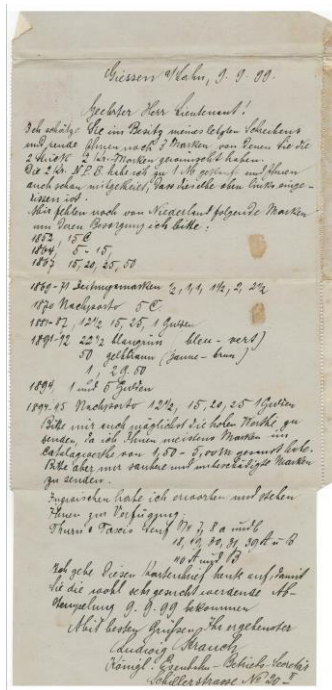 Giessen a/Lahn, 9.9.99.
Geehrter Herr Lieutenant!
Ich schätze Sie im Besitz meines letzten Schreibens
und sende Ihnen noch 3 Marken, von denen Sie die
2 Stück 2 Kr. Marken gewünscht haben.
Die 2 Kr. N.P.B. habe ich zu 1 M. gekauft und Ihnen
auch schon mitgeteilt, dass dieselbe oben links einge-
rissen ist.
Mir fehlen noch von Niederland folgende Marken
um deren Besorgung ich bitte:
1852, 15 C
1864, 5-15,
1867 15, 20, 25, 50
1869-71 Zeitungsmarken ½, 1, 1, 1½, 2, 2½
1870 Nachporto 5 C.
1881-87, 12½ 15, 25, 1 Gulden
1891-92 22½ blaugrün (bleu-vert)
50 gelbbraun (jaune-brun)
1, 2.50
1894, 1 und 5 Gulden
1894-95 Nachporto 12½, 15, 20, 25 1 Gulden
Bitte mir auch möglichst die hohen Werthe zu
senden, da ich Ihnen meistens Marken im
Catalogwerthe von 1,50 - 5,00 M gesandt habe.
Bitte aber nur saubere und unbeschädigte Marken
zu senden.
Inzwischen habe ich erworben und stehen
Ihnen zur Verfügung:
Thurn & Taxis No 7, 8 a und b
18, 29, 30, 31, 39 A u B
40 A und B
Ich gebe diesen Kartenbrief heute auf, damit
Sie die wohl sehr gesucht werdende Ab-
stempelung 9.9.99 bekommen
Mit besten Grüßen Ihr ergebenster
Ludwig Strauch
Königl. Eisenbahn-Betriebs-Secretär
Schillerstrasse No 20 II